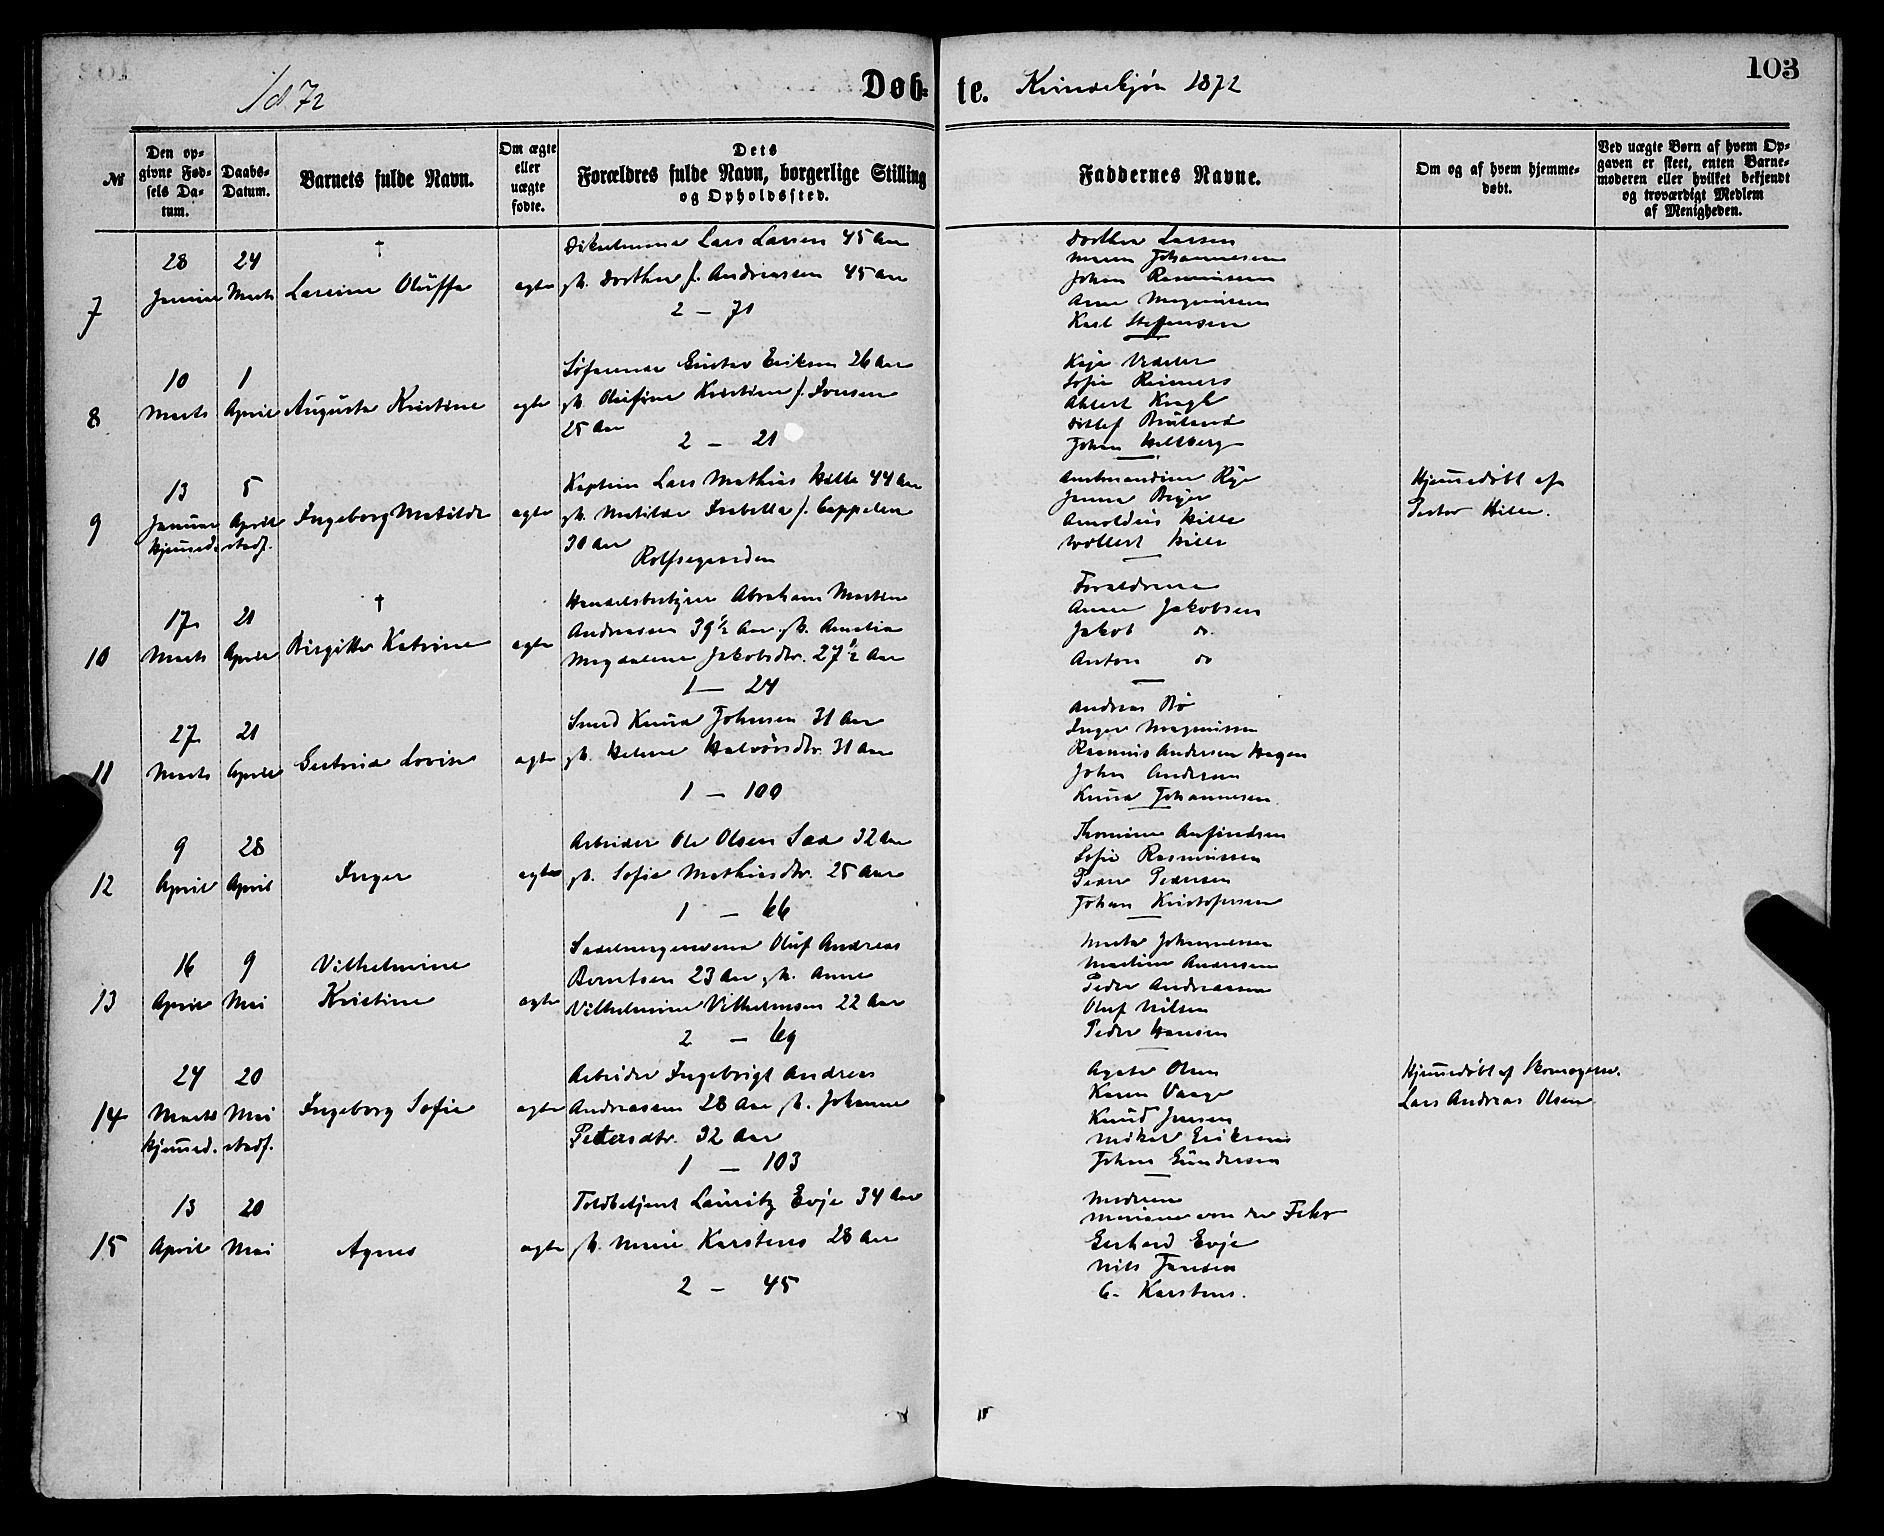 1872
Døb=
te. Kvindekjøn 1872
103
№
Den op=
givne Fød=
sels Da=
tum.
Daabs=
Datum.
Barnets fulde Navn.
Om ægte
eller
uægte
fødte.
Dets
Forældres fulde Navn, borgerlige Stilling
og Opholdssted.
Faddernes Navne.
Om og af hvem hjemme=
døbt.
Ved uægte Børn af hvem Op=
gaven er skeet, enten Barne=
moderen eller hvilket bekjendt
og troværdigt Medlem
af Menigheden.
7
28
Januar
24
Marts
†
Larine Oluffa
ægte
Lars Larsen 45 Aar
g. m. Dorthea f. Andreassen 45 Aar
2 — 71
Dorthea Larsen
Maren Johannesen
Johan Rasmussen
Anne Magnussen
Karl Steffensen
8
10
Marts
1
April
Augusta Kristine
ægte
Søfarende Gustav Eriksen 26 Aar
g. m. Olufine Kristine f. Iversen
25 Aar
2 — 21
Kaja
Sofie Reimers
Ahlert Kragh
Ditlef
Johan Hellberg
9
13
Januar
hjemmed.
5
April
stadf.
Ingeborg Matilde
ægte
Kaptein Lars Mathias Hille 44 Aar
g. m. Matilde Isabella f. Cappelen
30 Aar
Rolfsegaarden
Rye
Janna Beyer
Arnoldus Hille
Wollert Hille
Hjemmedøbt af
Pastor Hille.
10
17
Marts
21
April
†
Birgitte Katrine
ægte
Handelsbestyrer Abraham Martin
Andreassen 39½ Aar g. m. Amalia
Magdalene Jakobsdtr. 27½ Aar
1 — 24
Forældrene
Anne Jakobsen
Jakob do
Anton do
11
27
Marts
21
April
Gertrude Lovise
ægte
Smed Knud Johnsen 31 Aar
g. m. Helene Halvorsdtr. 31 Aar
1 — 100
Andreas Bø
Inger Magnussen
Rasmus Andersen Hagen
John Andersen
Knud Johannesen
12
9
April
28
April
Inger
ægte
Arbeider Ole Olsen 32 Aar
g. m. Sofie Mathiasdtr. 25 Aar
1 — 66
Thomine Anfindsen
Sofie Rasmussen
Peder Pedersen
Johan Kristofersen
13
16
April
9
Mai
Vilhelmine
Kristine
ægte
Sadelmagersvend Oluf Andreas
Berntsen 23 Aar g. m. Anne
Vilhelmine Vilhelmsen 22 Aar
2 — 69
Marta Johannesen
Martine Andersen
Peder Andreassen
Oluf Nilsen
Peder Hansen
14
24
Marts
hjemmed.
20
Mai
stadf.
Ingeborg Sofie
ægte
Arbeider Ingebrigt Andreas
Andreassen 28 Aar g. m. Johanne
Pettersdtr. 32 Aar
1 — 103
Agate Olsen
Karen Vaage
Knud Jensen
Mikal Eriksen
Johan Gundersen
Hjemmedøbt af Skomagersv.
Lars Andreas Olsen
15
13
April
20
Mai
Agnes
ægte
Toldbetjent Lauritz Evje 34 Aar
g. m. Marie Karstens 28 Aar
2 — 45
Moderen
Mariane von der Fehr
Gerhard Evje
Nils Jansen
C. Karstens.